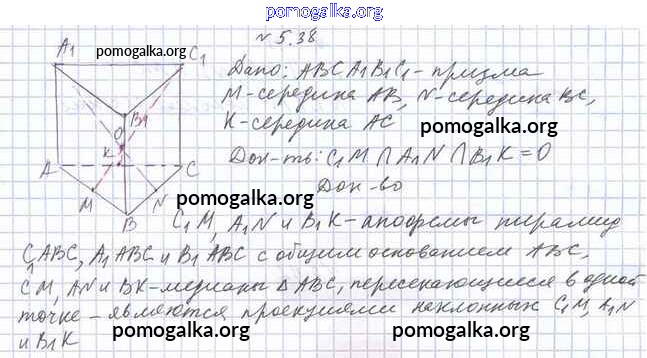 pomogalka.org
№ 5.38
A₁ pomogalka.org C₁
Дано: ABCA₁B₁C₁ - призма
M - середина AB, N - середина BC,
K - середина AC
pomogalka.org
B₁
O
K
A C
M N
B
Док-ть: C₁M ∩ A₁N ∩ B₁K = O
Док-во
pomogalka.org
C₁M, A₁N и B₁K - апофемы пирамид
C₁ABC, A₁ABC и B₁ABC с общим основанием ABC,
CM, AN и BK - медианы Δ ABC, пересекающиеся в одной
точке - являются проекциями наклонных C₁M, A₁N
и B₁K
pomogalka.org pomogalka.org